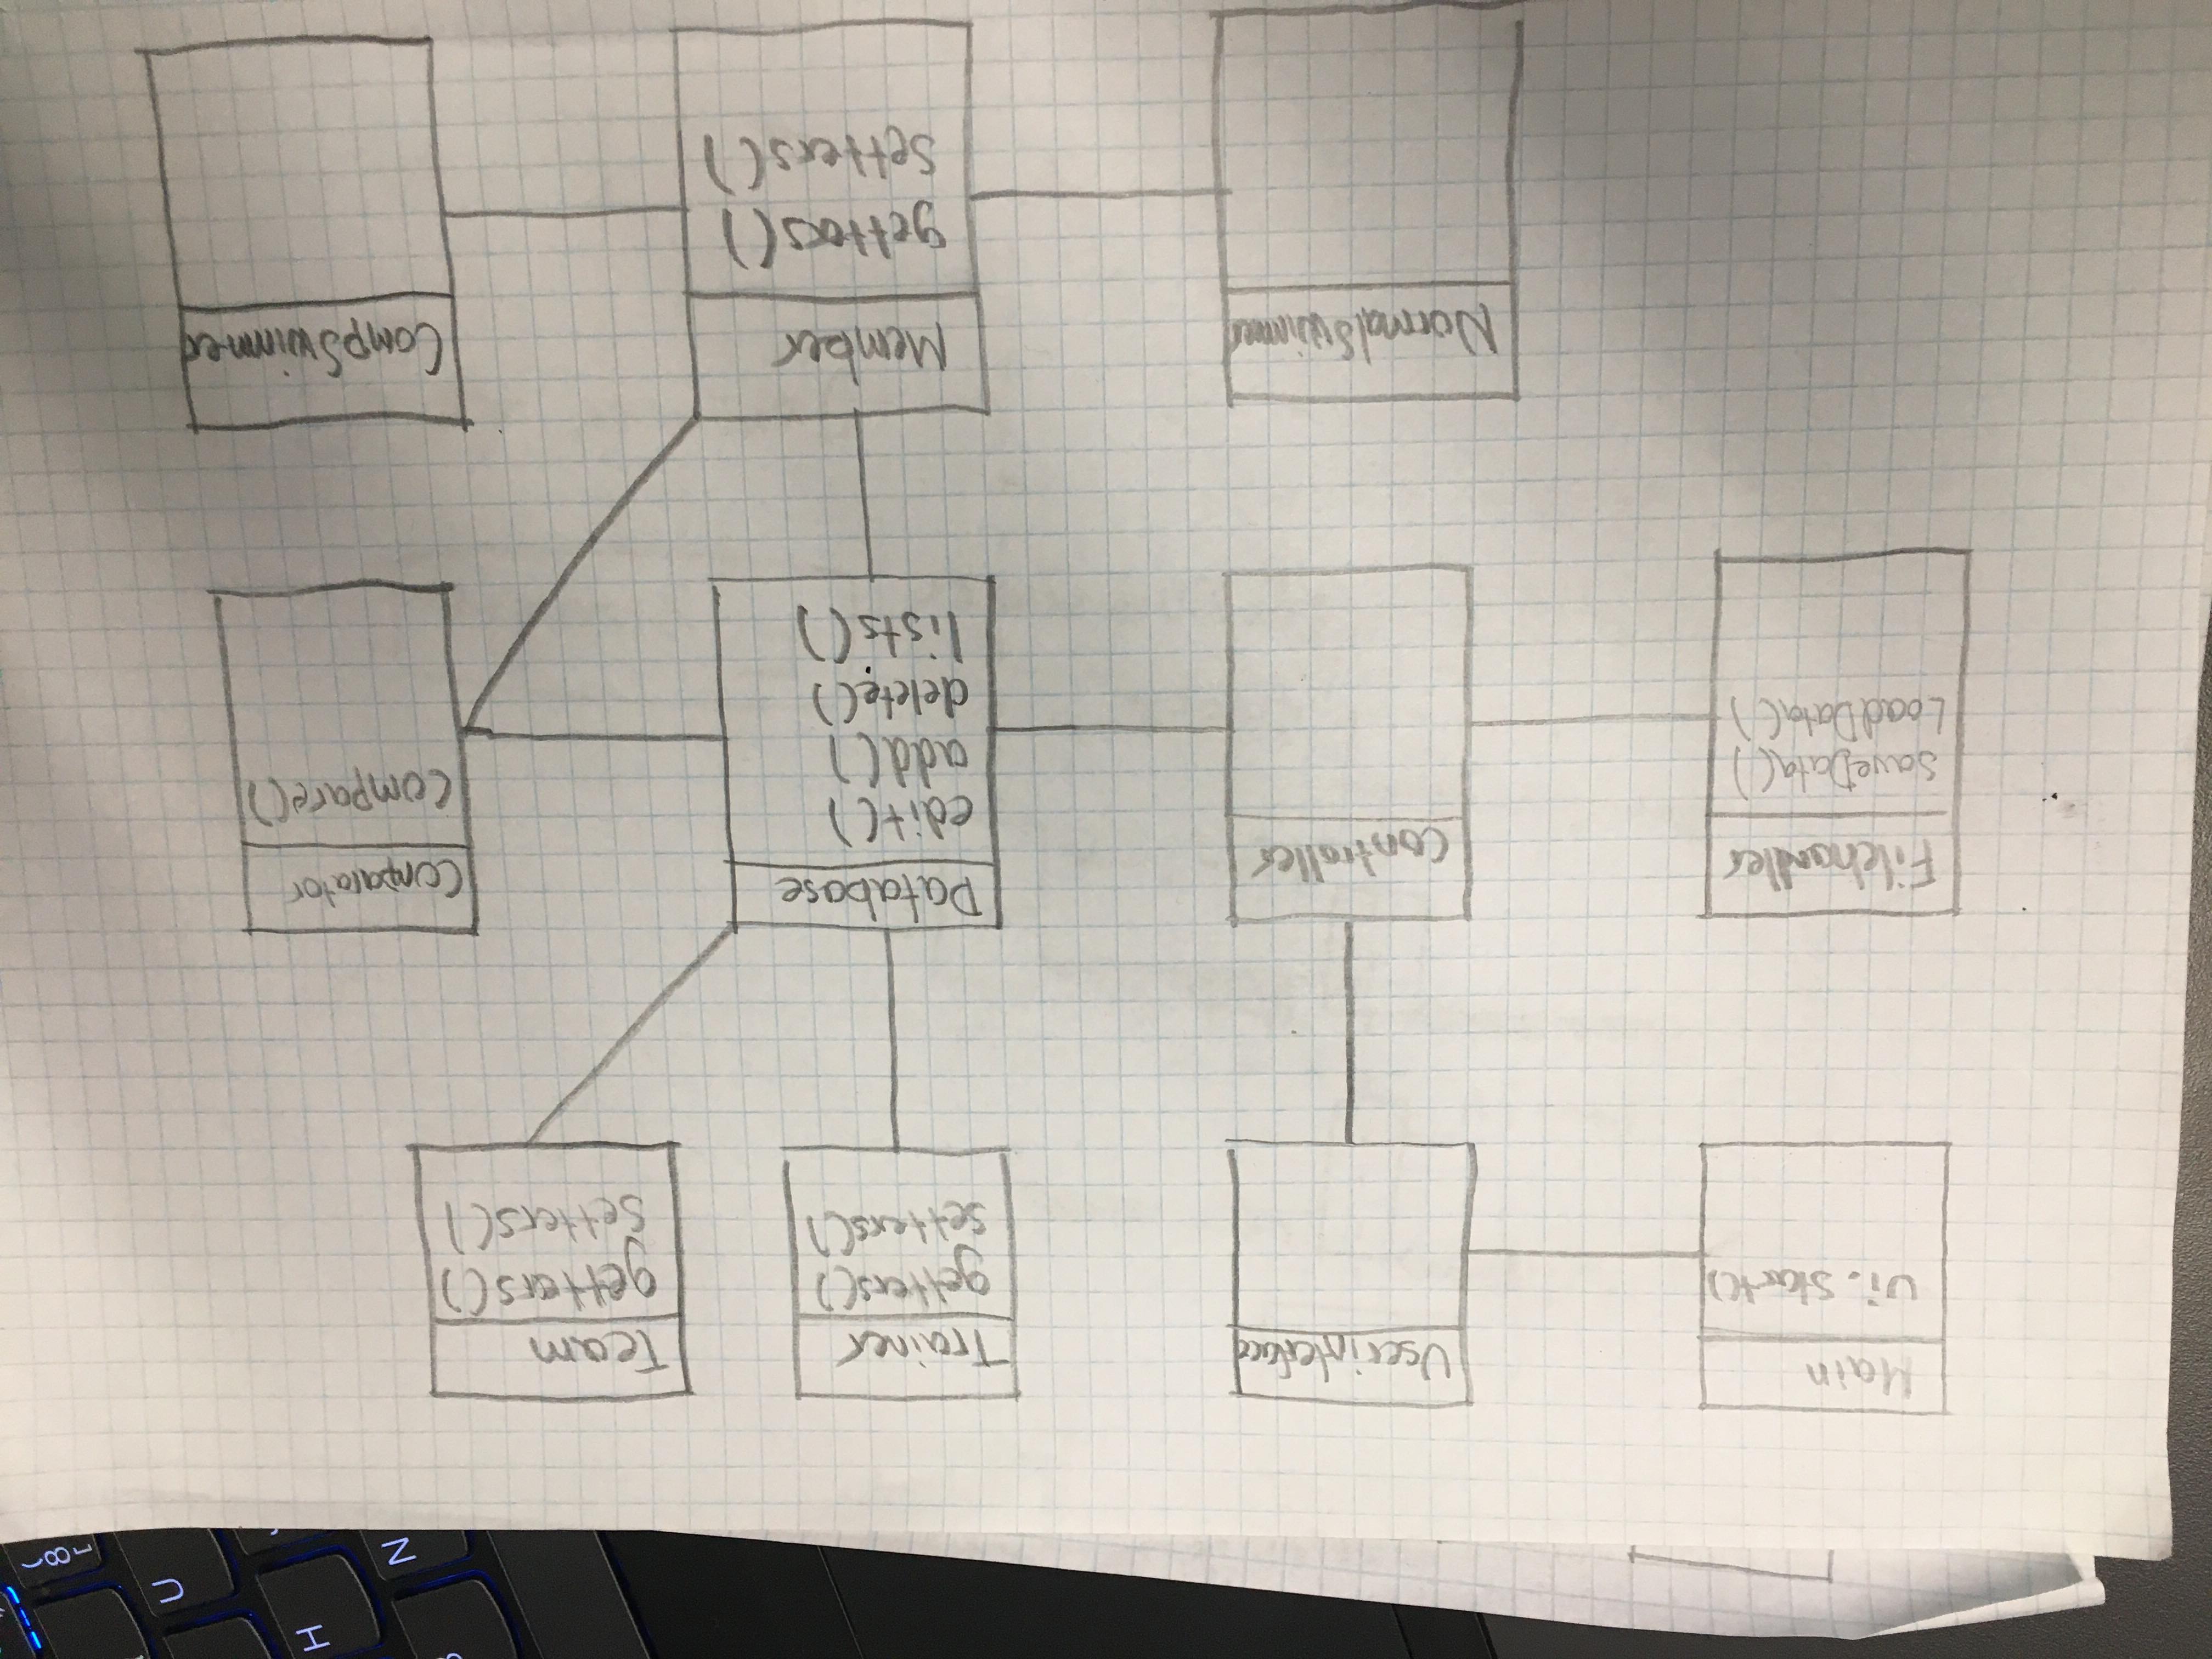 Main
ui.start()
Userinterface
Trainer
getters()
setters()
Team
getters()
setters()
Filehandler
saveData()
LoadData()
Controller
Database
edit()
add()
delete()
lists()
Comparator
compare()
NormalSwimmer
Member
getters()
setters()
CompSwimmer
H
U
N
8